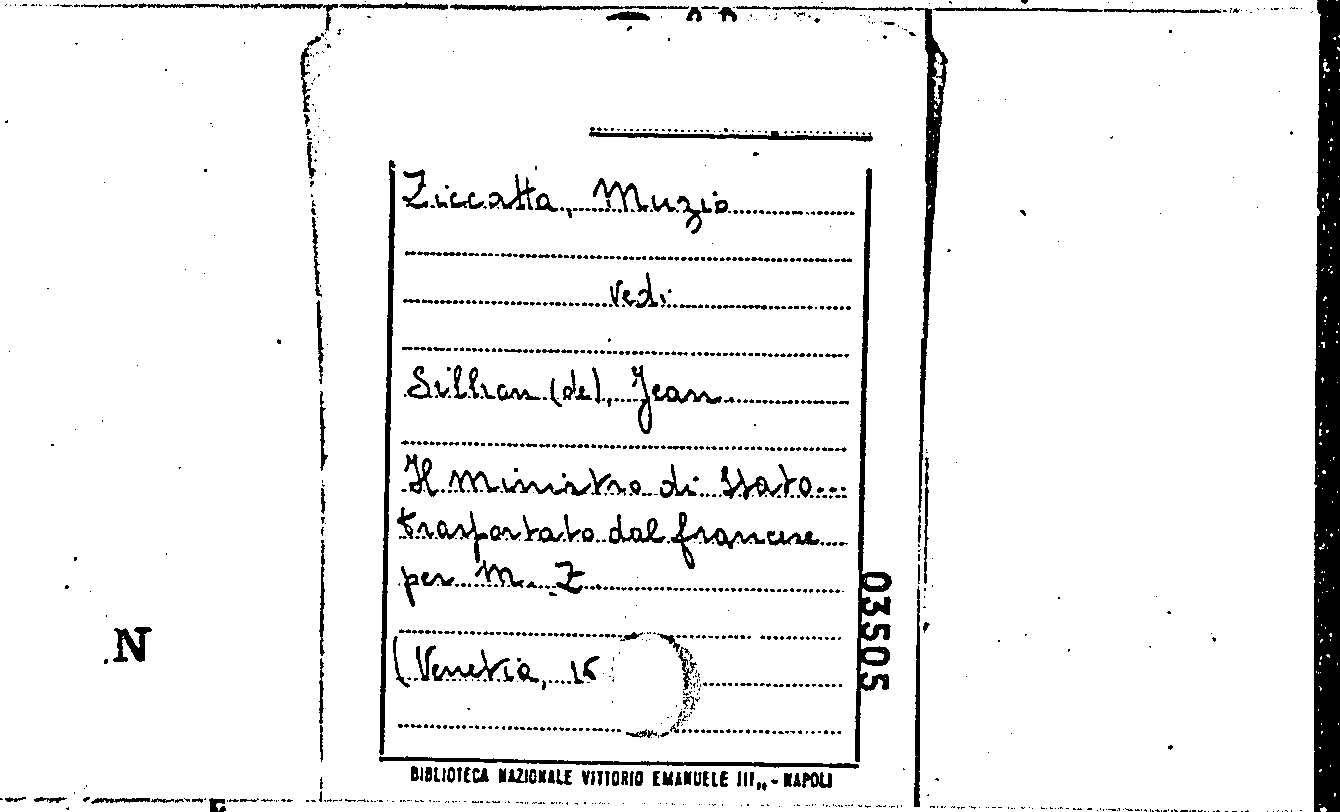 Ziccatta, Muzio
vedi
Silhan (de), Jean
Il Ministro di Stato...
trasportato dal francese
per M. Z.
(Venetia, 16
03505
N
BIBLIOTECA NAZIONALE VITTORIO EMANUELE III„ - NAPOLI